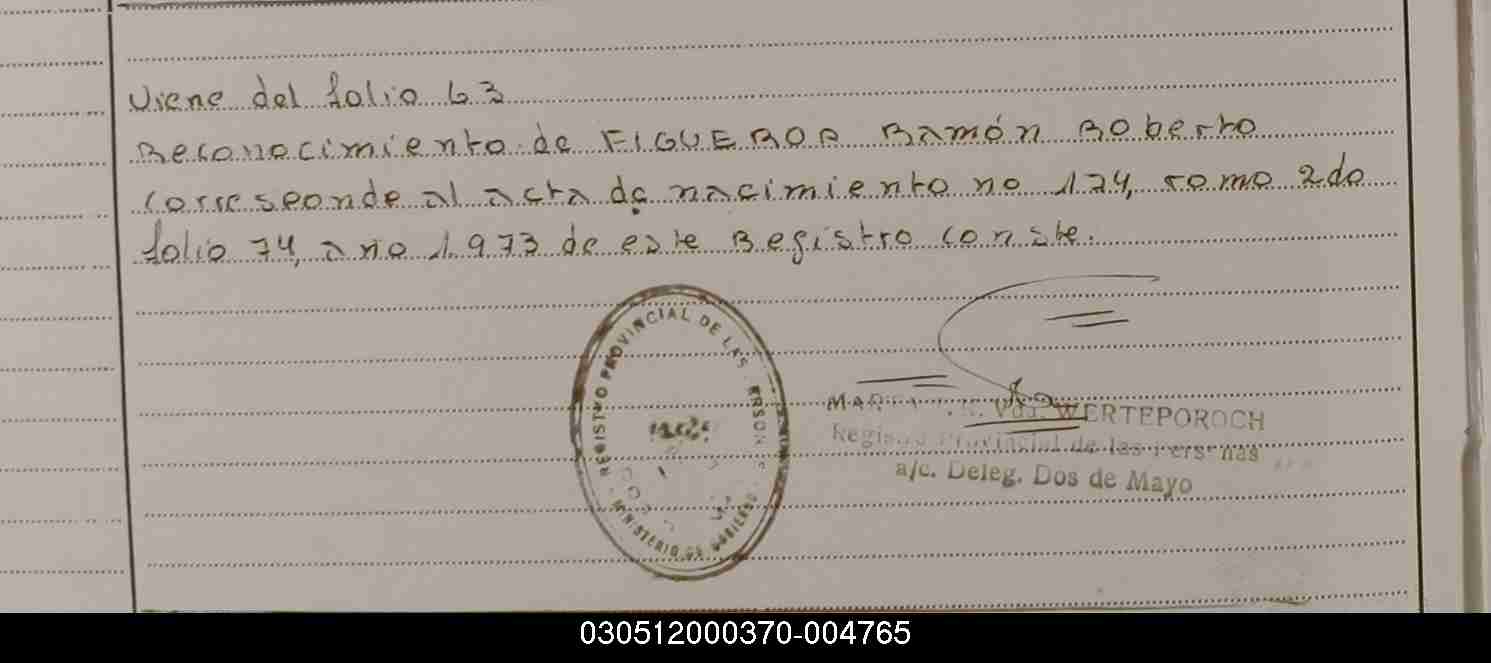 Viene del folio 63
Reconocimiento de FIGUEROA Ramón Roberto
Correseonde al acta de nacimiento no 124, tomo 2do
folio 74, ano 1.973 de este Registro conste.
REGISTRO PROVINCIAL DE LAS PERSONAS
MINISTERIO DE GOBIERNO
Vda. WERTEPOROCH
Registro Provincial de las Personas
a/c. Deleg. Dos de Mayo
030512000370-004765